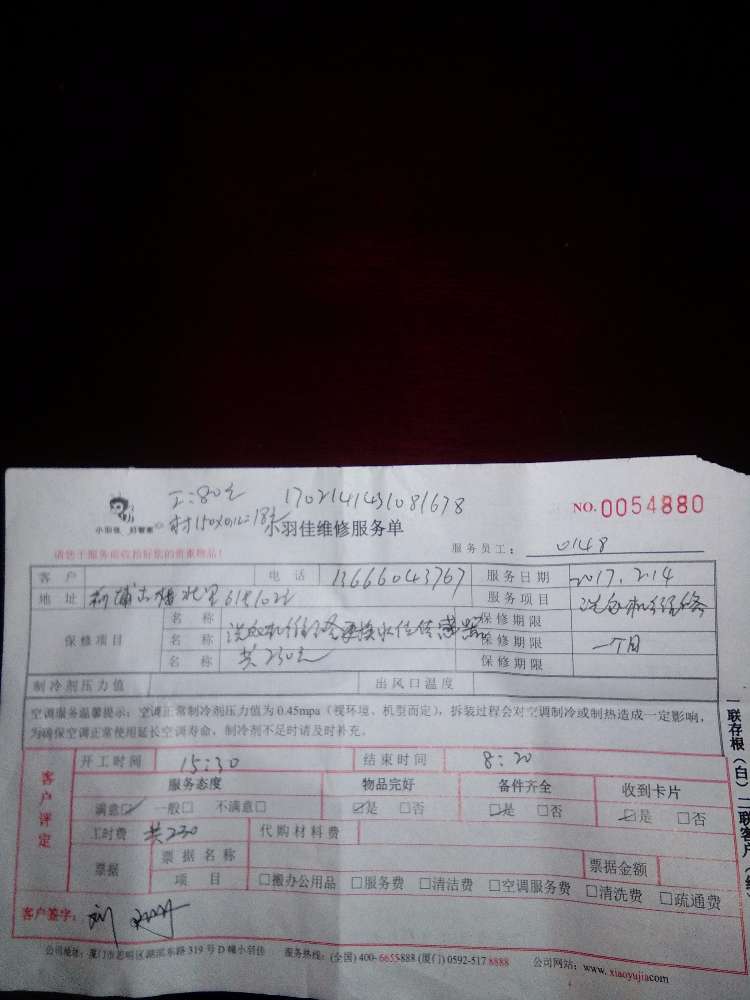 工:80元 1702141431081678
材150×0.12=18元
小羽佳 好管家
小羽佳维修服务单
NO.0054880
请您于服务前收拾好您的贵重物品!
服务员工: 0148
客户 电话 13666043767 服务日期 2017.2.14
地址 服务项目 洗衣机维修
保修项目 名称 洗衣机维修更换水位传感器 保修期限
名称 共230元 保修期限 一个月
名称 保修期限
制冷剂压力值 出风口温度
空调服务温馨提示:空调正常制冷剂压力值为0.45mpa(视环境、机型而定),拆装过程会对空调制冷或制热造成一定影响,
为确保空调正常使用延长空调寿命,制冷剂不足时请及时补充。
客户评定
开工时间 15:30 结束时间 8:20
服务态度 物品完好 备件齐全 收到卡片
满意☑ 一般□ 不满意□ ☑是 □否 ☑是 □否 ☑是 □否
工时费 共230 代购材料费
票据 票据名称 票据金额
项目 □搬办公用品 □服务费 □清洁费 □空调服务费 □清洗费 □疏通费
客户签字: 刘
公司地址:厦门市思明区湖滨东路319号D幢小羽佳 服务热线:(全国)400-6655888(厦门)0592-5178888 公司网站:www.xiaoyujia.com
一联存根(白)二联客户(红